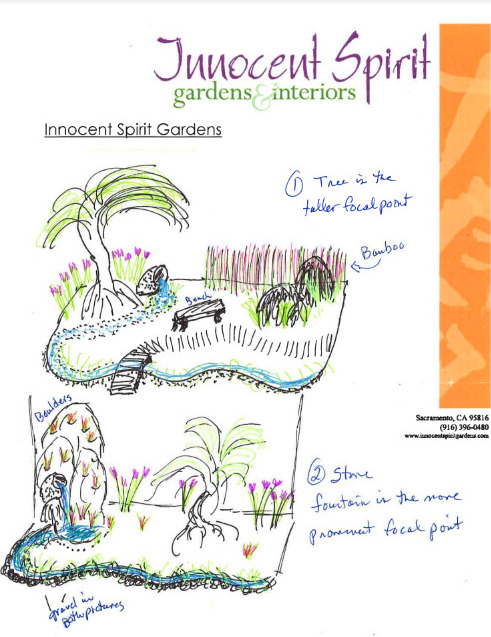 Innocent Spirit
gardens&interiors
Innocent Spirit Gardens
① Tree is the
taller focal point
Bamboo
Bench
Boulders
Sacramento, CA 95816
(916) 396-0480
www.innocentspiritgardens.com
② Stone
fountain is the more
prominent focal point
gravel in
Both pictures